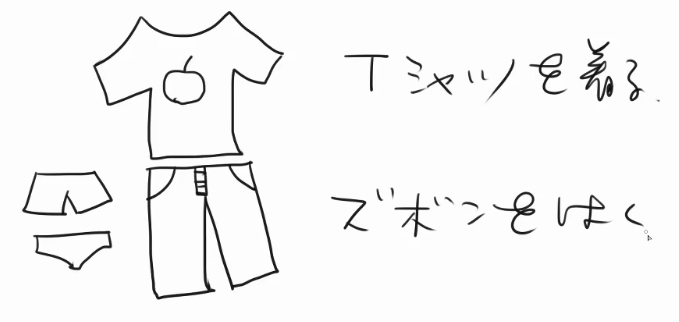 Tシャツを着る.
ズボンをはく